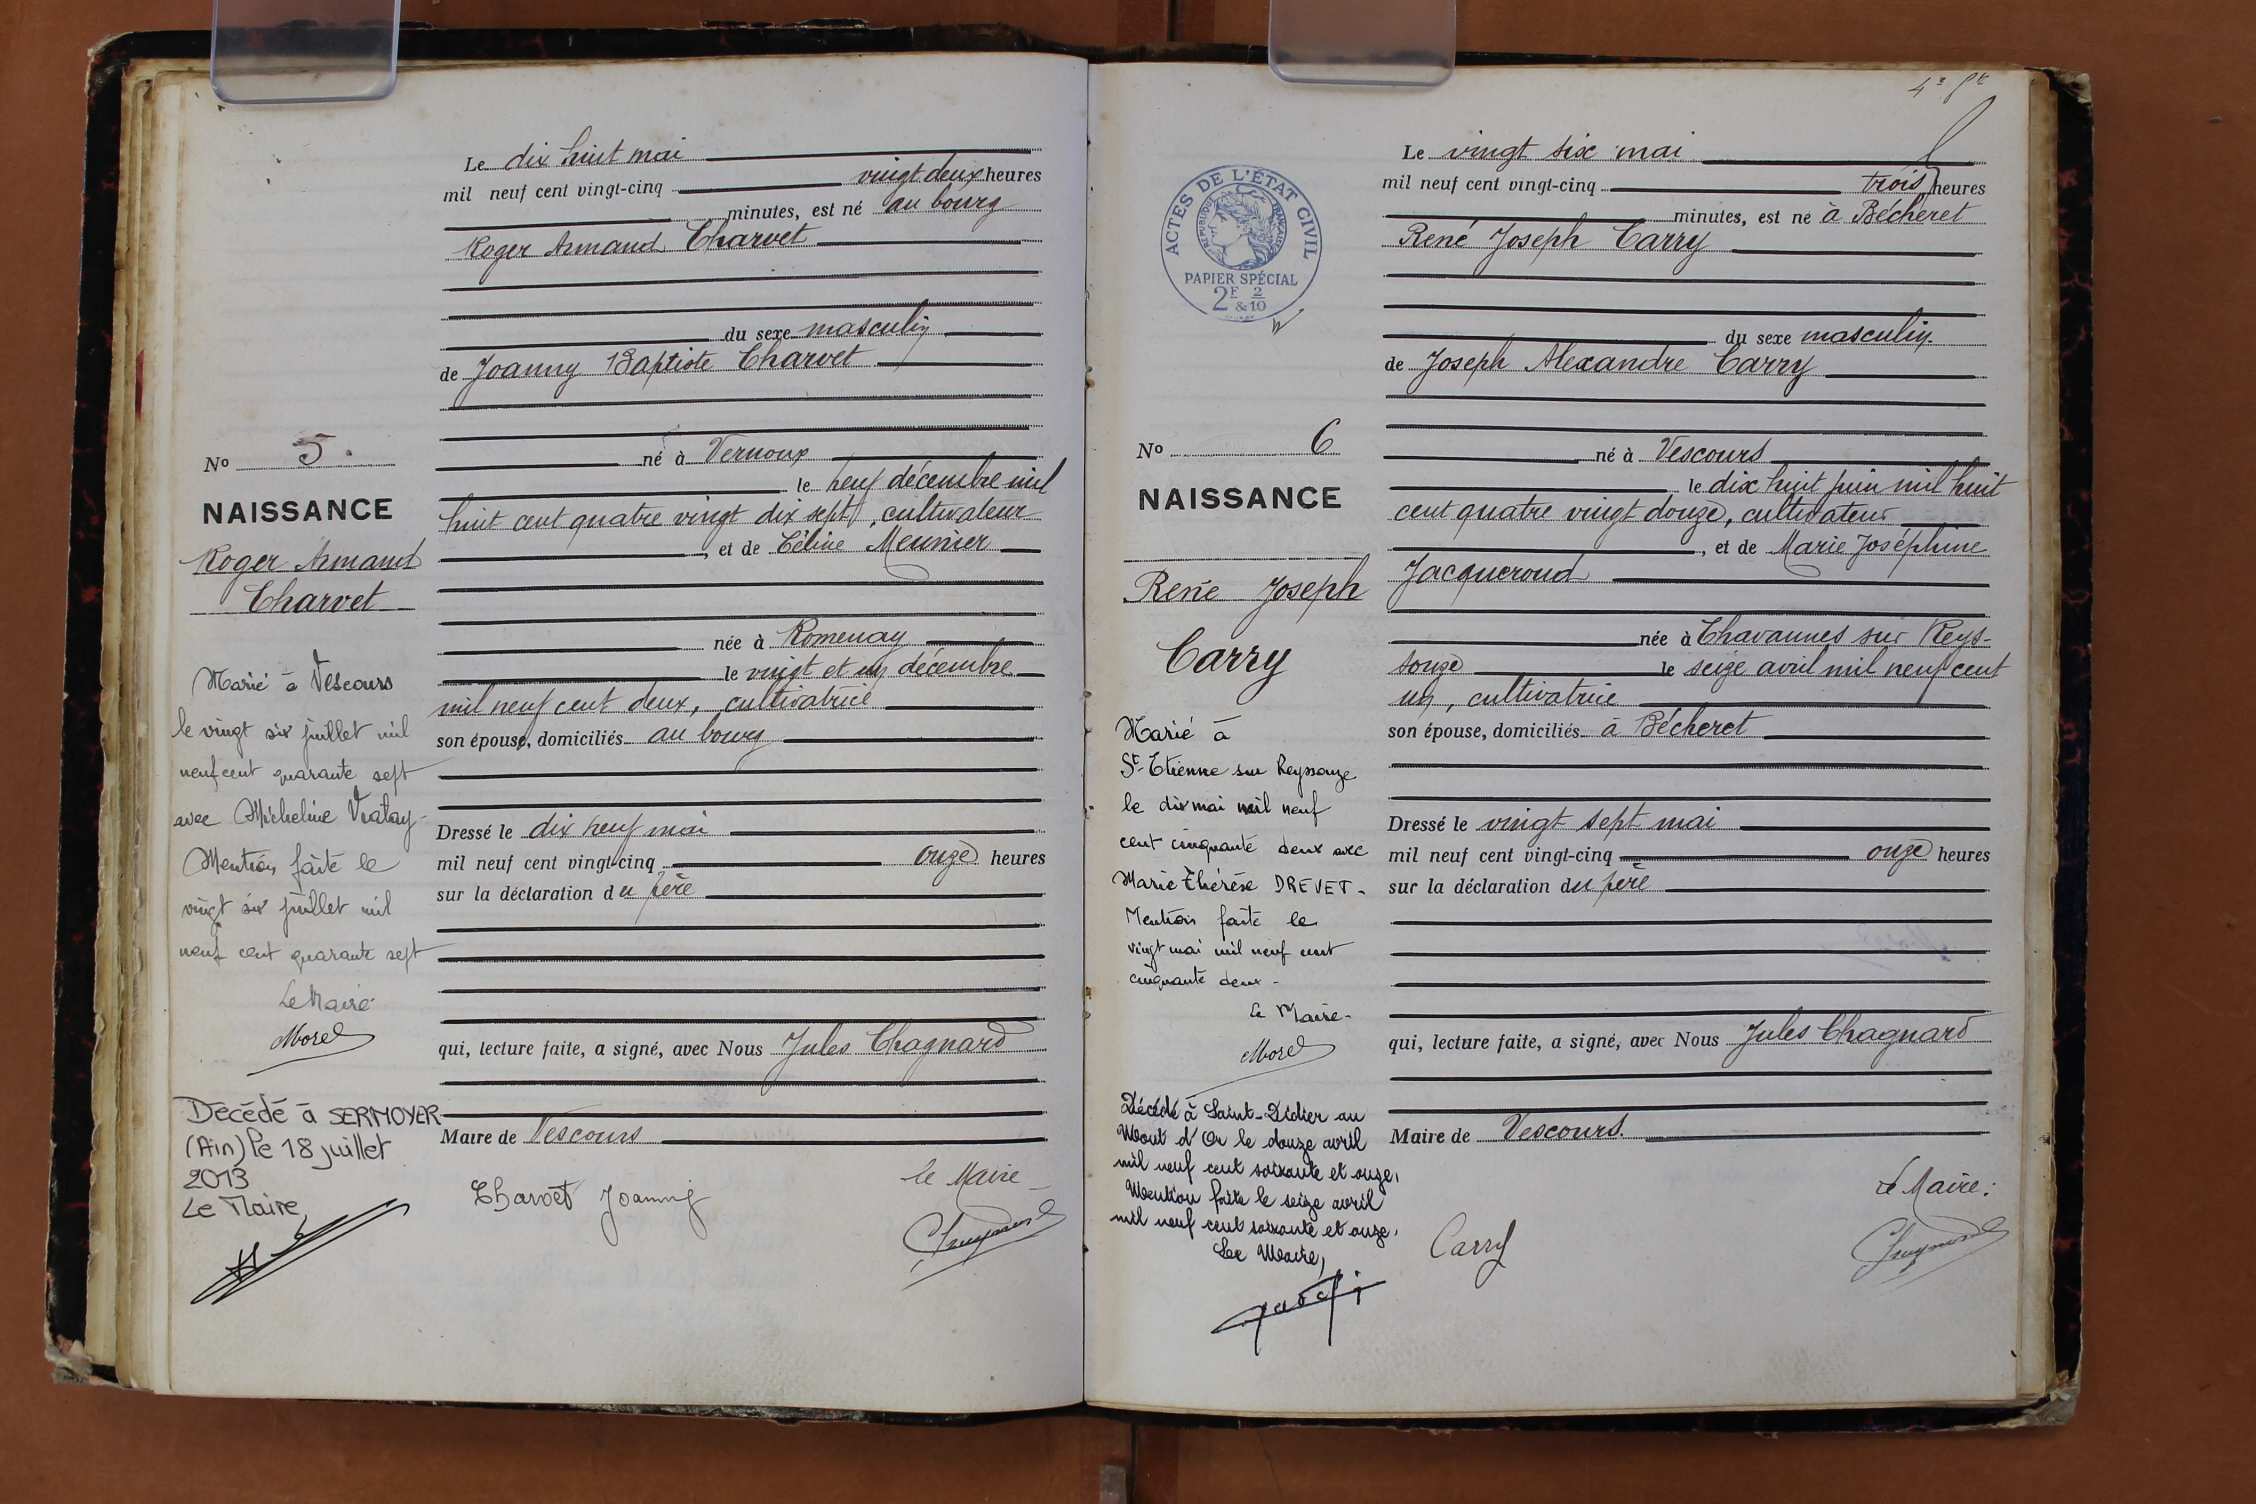 Le dix huit mai
mil neuf cent vingt-cinq vingt deux heures
minutes, est né au bourg
Roger Armand Charvet
du sexe masculin
de Joanny Baptiste Charvet
né à Vernoux
le neuf décembre mil
huit cent quatre vingt dix sept, cultivateur
, et de Céline Meunier
née à Romenay
le vingt et un décembre
mil neuf cent deux, cultivatrice
son épouse, domiciliés au bourg
Dressé le dix neuf mai
mil neuf cent vingt-cinq onze heures
sur la déclaration du père
qui, lecture faite, a signé, avec Nous Jules Chagnard
Maire de Vescours
Charvet Joanny
le Maire
No 5.
NAISSANCE
Roger Armand
Charvet
Marié à Vescours
le vingt six juillet mil
neuf cent quarante sept
avec Micheline Vratay-
Mention faite le
vingt six juillet mil
neuf cent quarante sept
Le Maire
Morel
Décédé à SERMOYER
(Ain) le 18 juillet
2013
Le Maire,
Le vingt six mai
mil neuf cent vingt-cinq trois heures
minutes, est né à Bécheret
René Joseph Carry
du sexe masculin.
de Joseph Alexandre Carry
né à Vescours
le dix huit juin mil huit
cent quatre vingt douze, cultivateur
, et de Marie Joséphine
Jacqueroud
née à Chavannes sur Reys-
souze le seize avril mil neuf cent
un, cultivatrice
son épouse, domiciliés à Bécheret
Dressé le vingt sept mai
mil neuf cent vingt-cinq onze heures
sur la déclaration du père
qui, lecture faite, a signé, avec Nous Jules Chagnard
Maire de Vescours.
Le Maire:
Carry
ACTES DE L'ÉTAT CIVIL
RÉPUBLIQUE FRANÇAISE
PAPIER SPÉCIAL
2F & 2/10
No 6
NAISSANCE
René Joseph
Carry
Marié à
St-Etienne sur Reyssouze
le dix mai mil neuf
cent cinquante deux avec
Marie Thérèse DREVET-
Mention faite le
vingt mai mil neuf cent
cinquante deux-
Le Maire-
Morel
Décédé à Saint-Didier au
Mont d'Or le douze avril
mil neuf cent soixante et onze,
Mention faite le seize avril
mil neuf cent soixante et onze,
Le Maire,